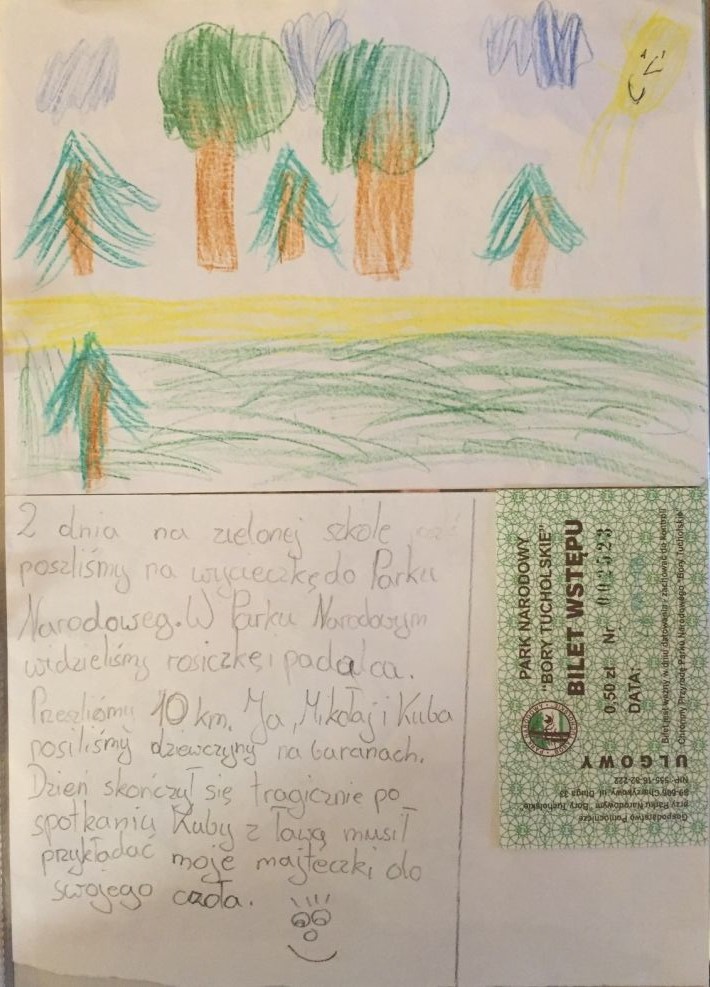 2 dnia na zielonej szkole
poszliśmy na wycieczkę do Parku
Narodoweg. W Parku Narodowym
widzieliśmy rosiczkę i padalca.
Przeszliśmy 10 km. Ja, Mikołaj i Kuba
nosiliśmy dziewczyny na baranach.
Dzień skończył się tragicznie po
spotkaniu Kuby z Ławą musił
przykładać moje majteczki do
swojego czoła.
PARK NARODOWY
"BORY TUCHOLSKIE"
BILET WSTĘPU
0,50 zł Nr 002523
DATA:
Bilet jest ważny w dniu datowania i zachować do kontroli
Chrońmy Przyrodę Parku Narodowego "Bory Tucholskie"
ULGOWY
Gospodarstwo Pomocnicze
przy Parku Narodowym "Bory Tucholskie"
89-606 Charzykowy, ul. Długa 33
NIP: 555-16-82-222